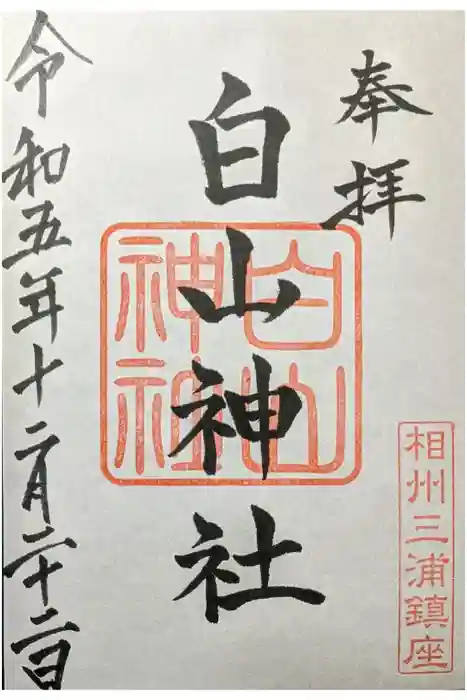 奉拝
白山神社
白山
神社
相州三浦鎮座
令和五年十二月二十二日